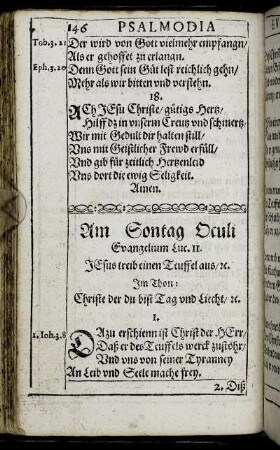 146 PSALMODIA
Tob.3.21 Der wird von Gott vielmehr empfangn/
Als er gehoffet zu erlangn.
Eph.3.20 Denn Gott sein Güt lest reichlich gehn/
Mehr als wir bitten vnd verstehn.
18.
ACh JEsu Christe/ gütigs Hertz/
Hilff dz in vnserm Creutz vnd schmertz/
Wir mit Gedult dir halten still/
Vns mit Geistlicher Frewd erfüll/
Vnd gib für zeitlich Hertzenleid
Vns dort die ewig Seligkeit.
Amen.
Am Sontag Oculi
Evangelium Luc. 11.
JEsus treib einen Teuffel aus/ &c.
Im Thon:
Christe der du bist Tag vnd Liecht/ &c.
1.
1. Ioh. 3.8 DAzu erschienn ist Christ der HErr/
Daß er des Teuffels werck zustöhr/
Vnd vns von seiner Tyranney
An Leib vnd Seele mache frey.
2. Diß